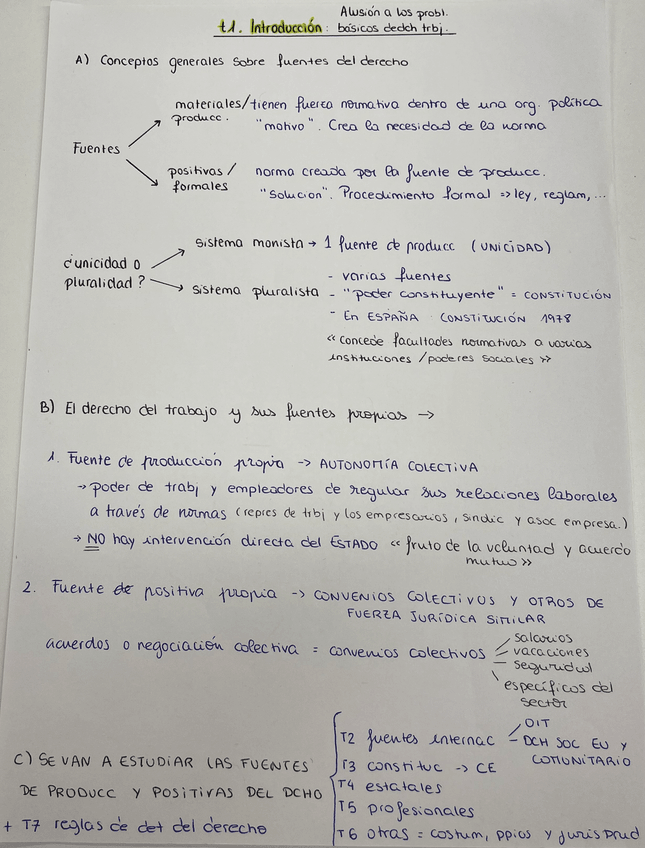 Alusión a los probl.
t.1. Introducción: básicos dedch trbj.
A) Conceptos generales sobre fuentes del derecho
materiales/tienen fuerza normativa dentro de una org. política
producc. "motivo". Crea la necesidad de la norma
Fuentes
positivas/ norma creada por la fuente de producc.
formales "solucion". Procedimiento formal => ley, reglam,...
Sistema monista → 1 fuente de producc (UNICIDAD)
¿unicidad o
pluralidad?
- varias fuentes
sistema pluralista - "poder constituyente" = CONSTITUCIÓN
- En ESPAÑA CONSTITUCIÓN 1978
"concede facultades normativas a varias
instituciones / poderes sociales"
B) El derecho del trabajo y sus fuentes propias →
1. Fuente de producción propia → AUTONOMÍA COLECTIVA
→ poder de trabj y empleadores de regular sus relaciones laborales
a través de normas (repres de trbj y los empresarios, sindic y asoc empresa.)
→ NO hay intervención directa del ESTADO "fruto de la voluntad y acuerdo
mutuo"
2. Fuente de positiva propia → CONVENIOS COLECTIVOS Y OTROS DE
FUERZA JURÍDICA SIMILAR
salarios
acuerdos o negociación colectiva = convenios colectivos - vacaciones
- seguridad
específicos del
sector
OIT
T2 fuentes internac - DCH SOC EU Y
COMUNITARIO
C) SE VAN A ESTUDIAR LAS FUENTES T3 constituc → CE
DE PRODUCC Y POSITIVAS DEL DCHO T4 estatales
T5 profesionales
+ T7 reglas de det del derecho T6 otras = costum, ppios y jurisprud